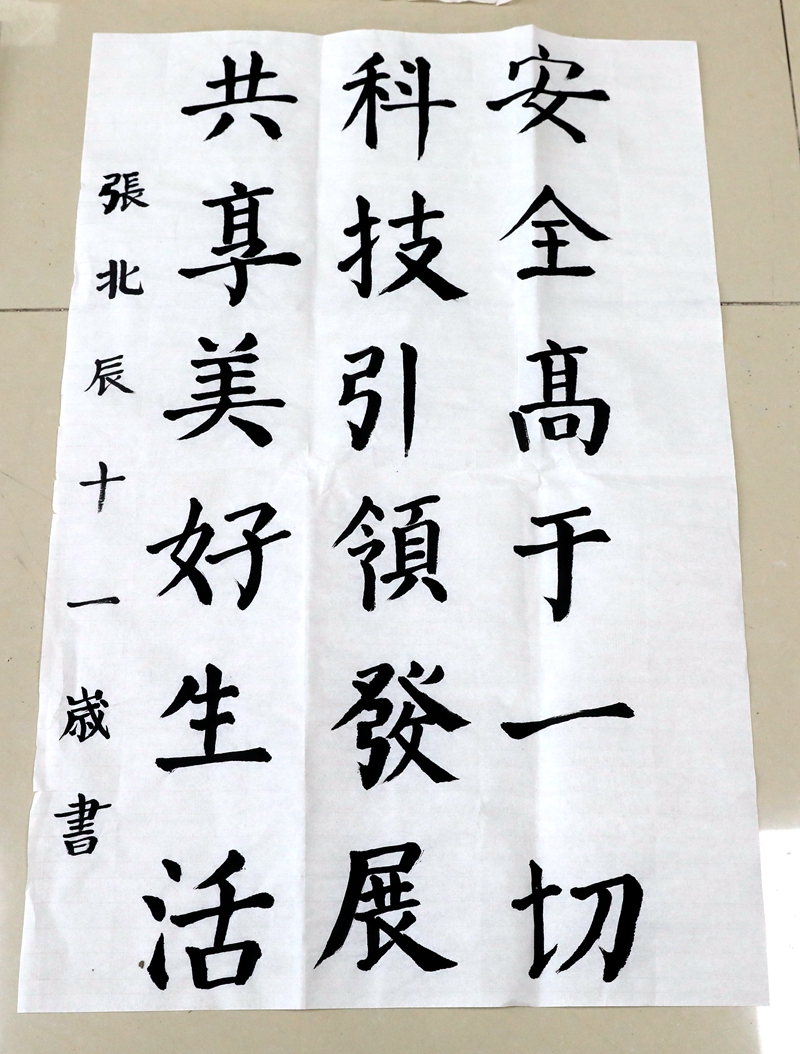 安全髙于一切
科技引領發展
共享美好生活
張北辰十一歲書